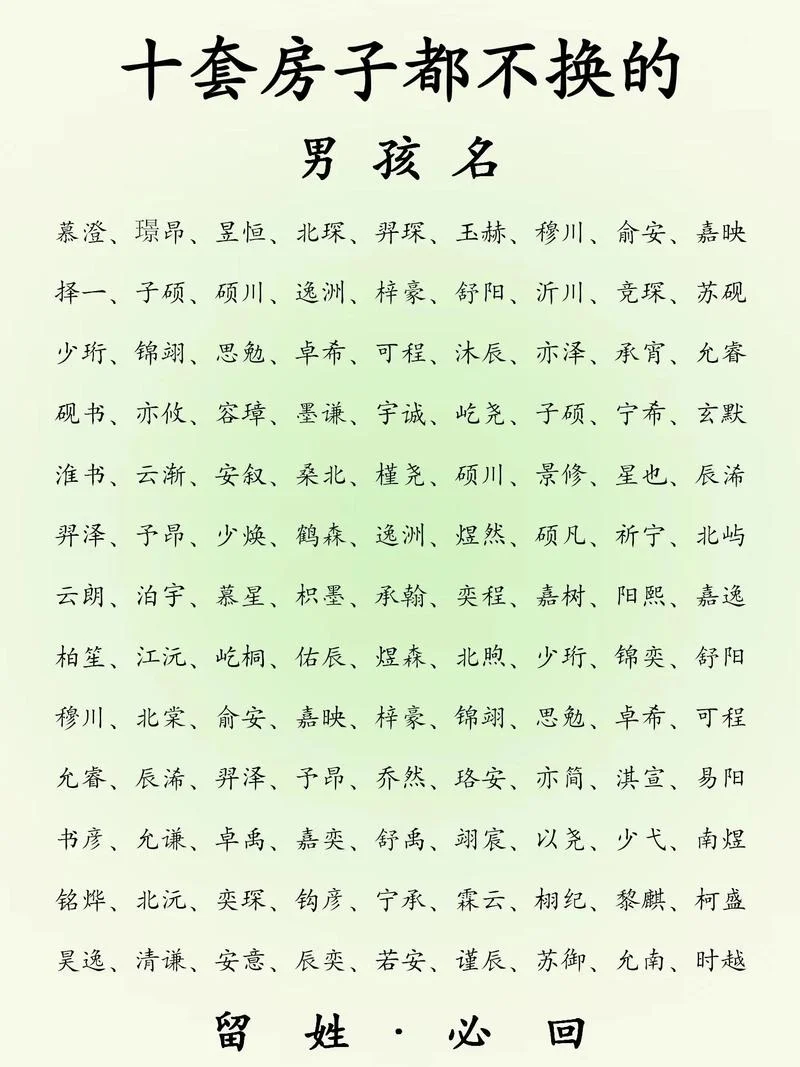 十套房子都不换的
男孩名
慕澄、璟昂、昱恒、北琛、羿琛、玉赫、穆川、俞安、嘉映
择一、子硕、硕川、逸洲、梓豪、舒阳、沂川、竞琛、苏砚
少珩、锦翊、思勉、卓希、可程、沐辰、亦泽、承宵、允睿
砚书、亦攸、容璋、墨谦、宇诚、屹尧、子硕、宁希、玄默
淮书、云渐、安叙、桑北、槿尧、硕川、景修、星也、辰浠
羿泽、予昂、少焕、鹤森、逸洲、煜然、硕凡、祈宁、北屿
云朗、泊宇、慕星、枳墨、承翰、奕程、嘉树、阳熙、嘉逸
柏笙、江沅、屹桐、佑辰、煜森、北煦、少珩、锦奕、舒阳
穆川、北棠、俞安、嘉映、梓豪、锦翊、思勉、卓希、可程
允睿、辰浠、羿泽、予昂、乔然、珞安、亦简、淇宣、易阳
书彦、允谦、卓禹、嘉奕、舒禹、翊宸、以尧、少弋、南煜
铭烨、北沅、奕琛、钩彦、宁承、霖云、栩纪、黎麒、柯盛
昊逸、清谦、安意、辰奕、若安、谨辰、苏御、允南、时越
留姓·必回